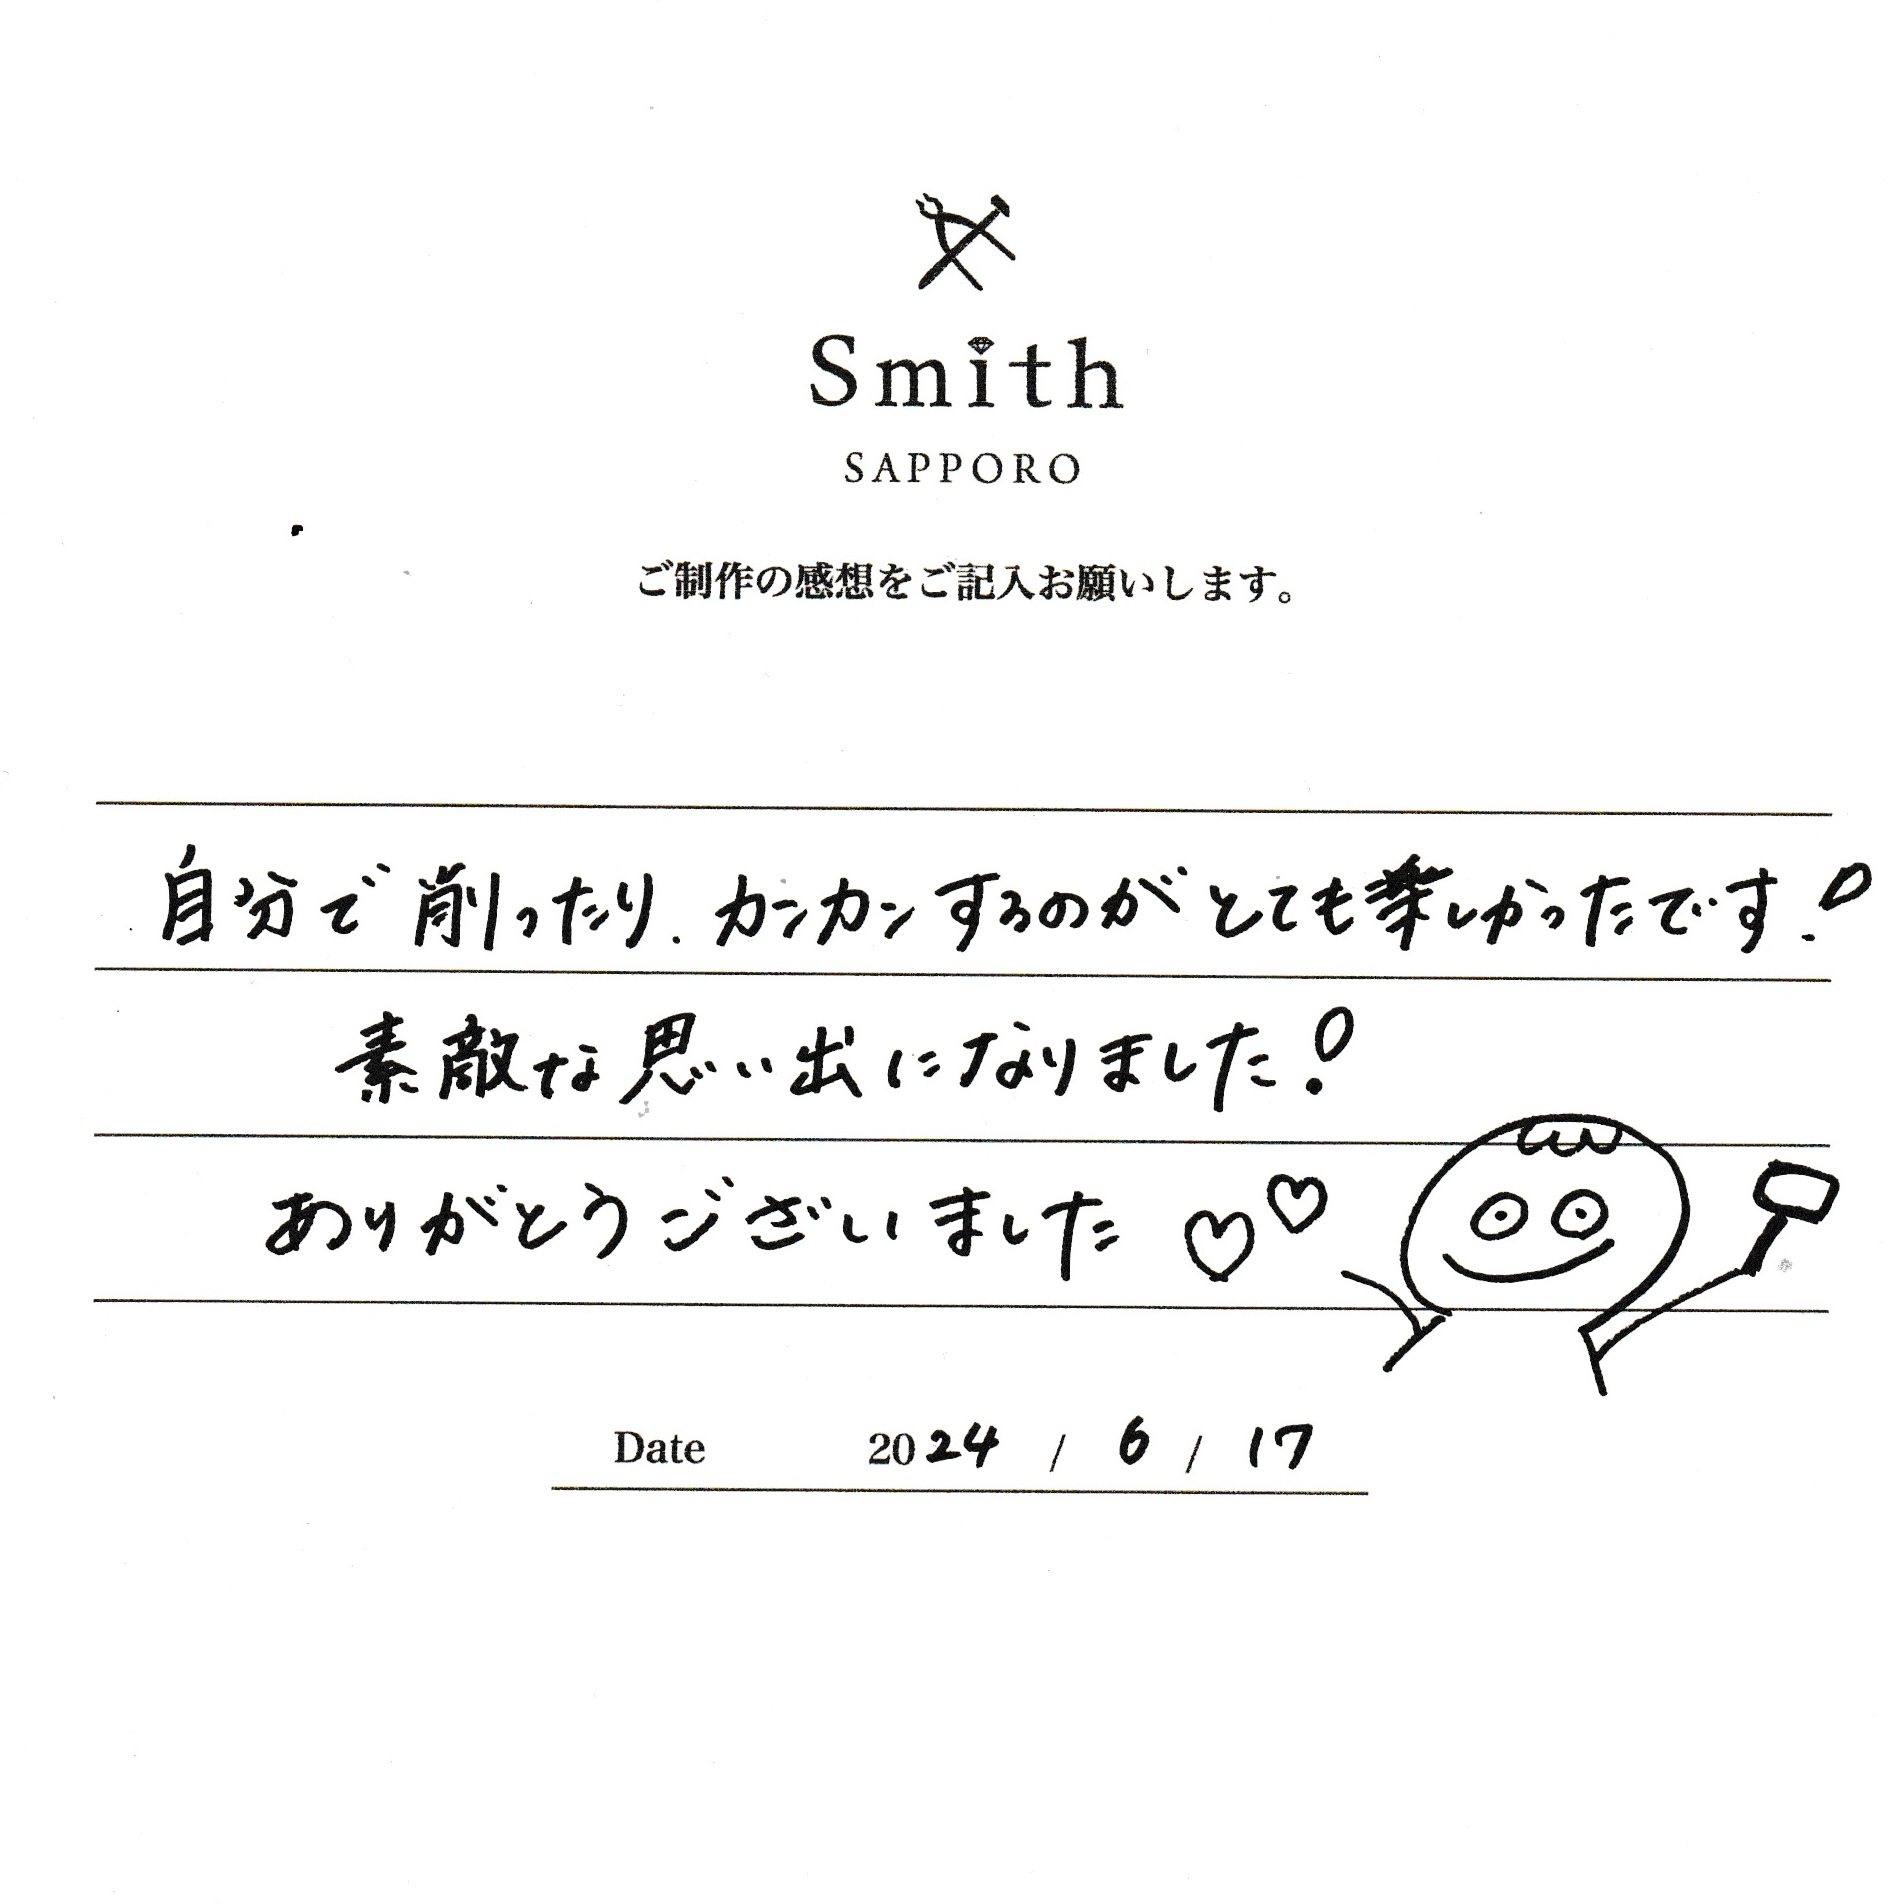 Smith
SAPPORO
ご制作の感想をご記入お願いします。
自分で削ったり、カンカンするのがとても楽しかったです!
素敵な思い出になりました!
ありがとうございました♡♡
Date 2024 / 6 / 17